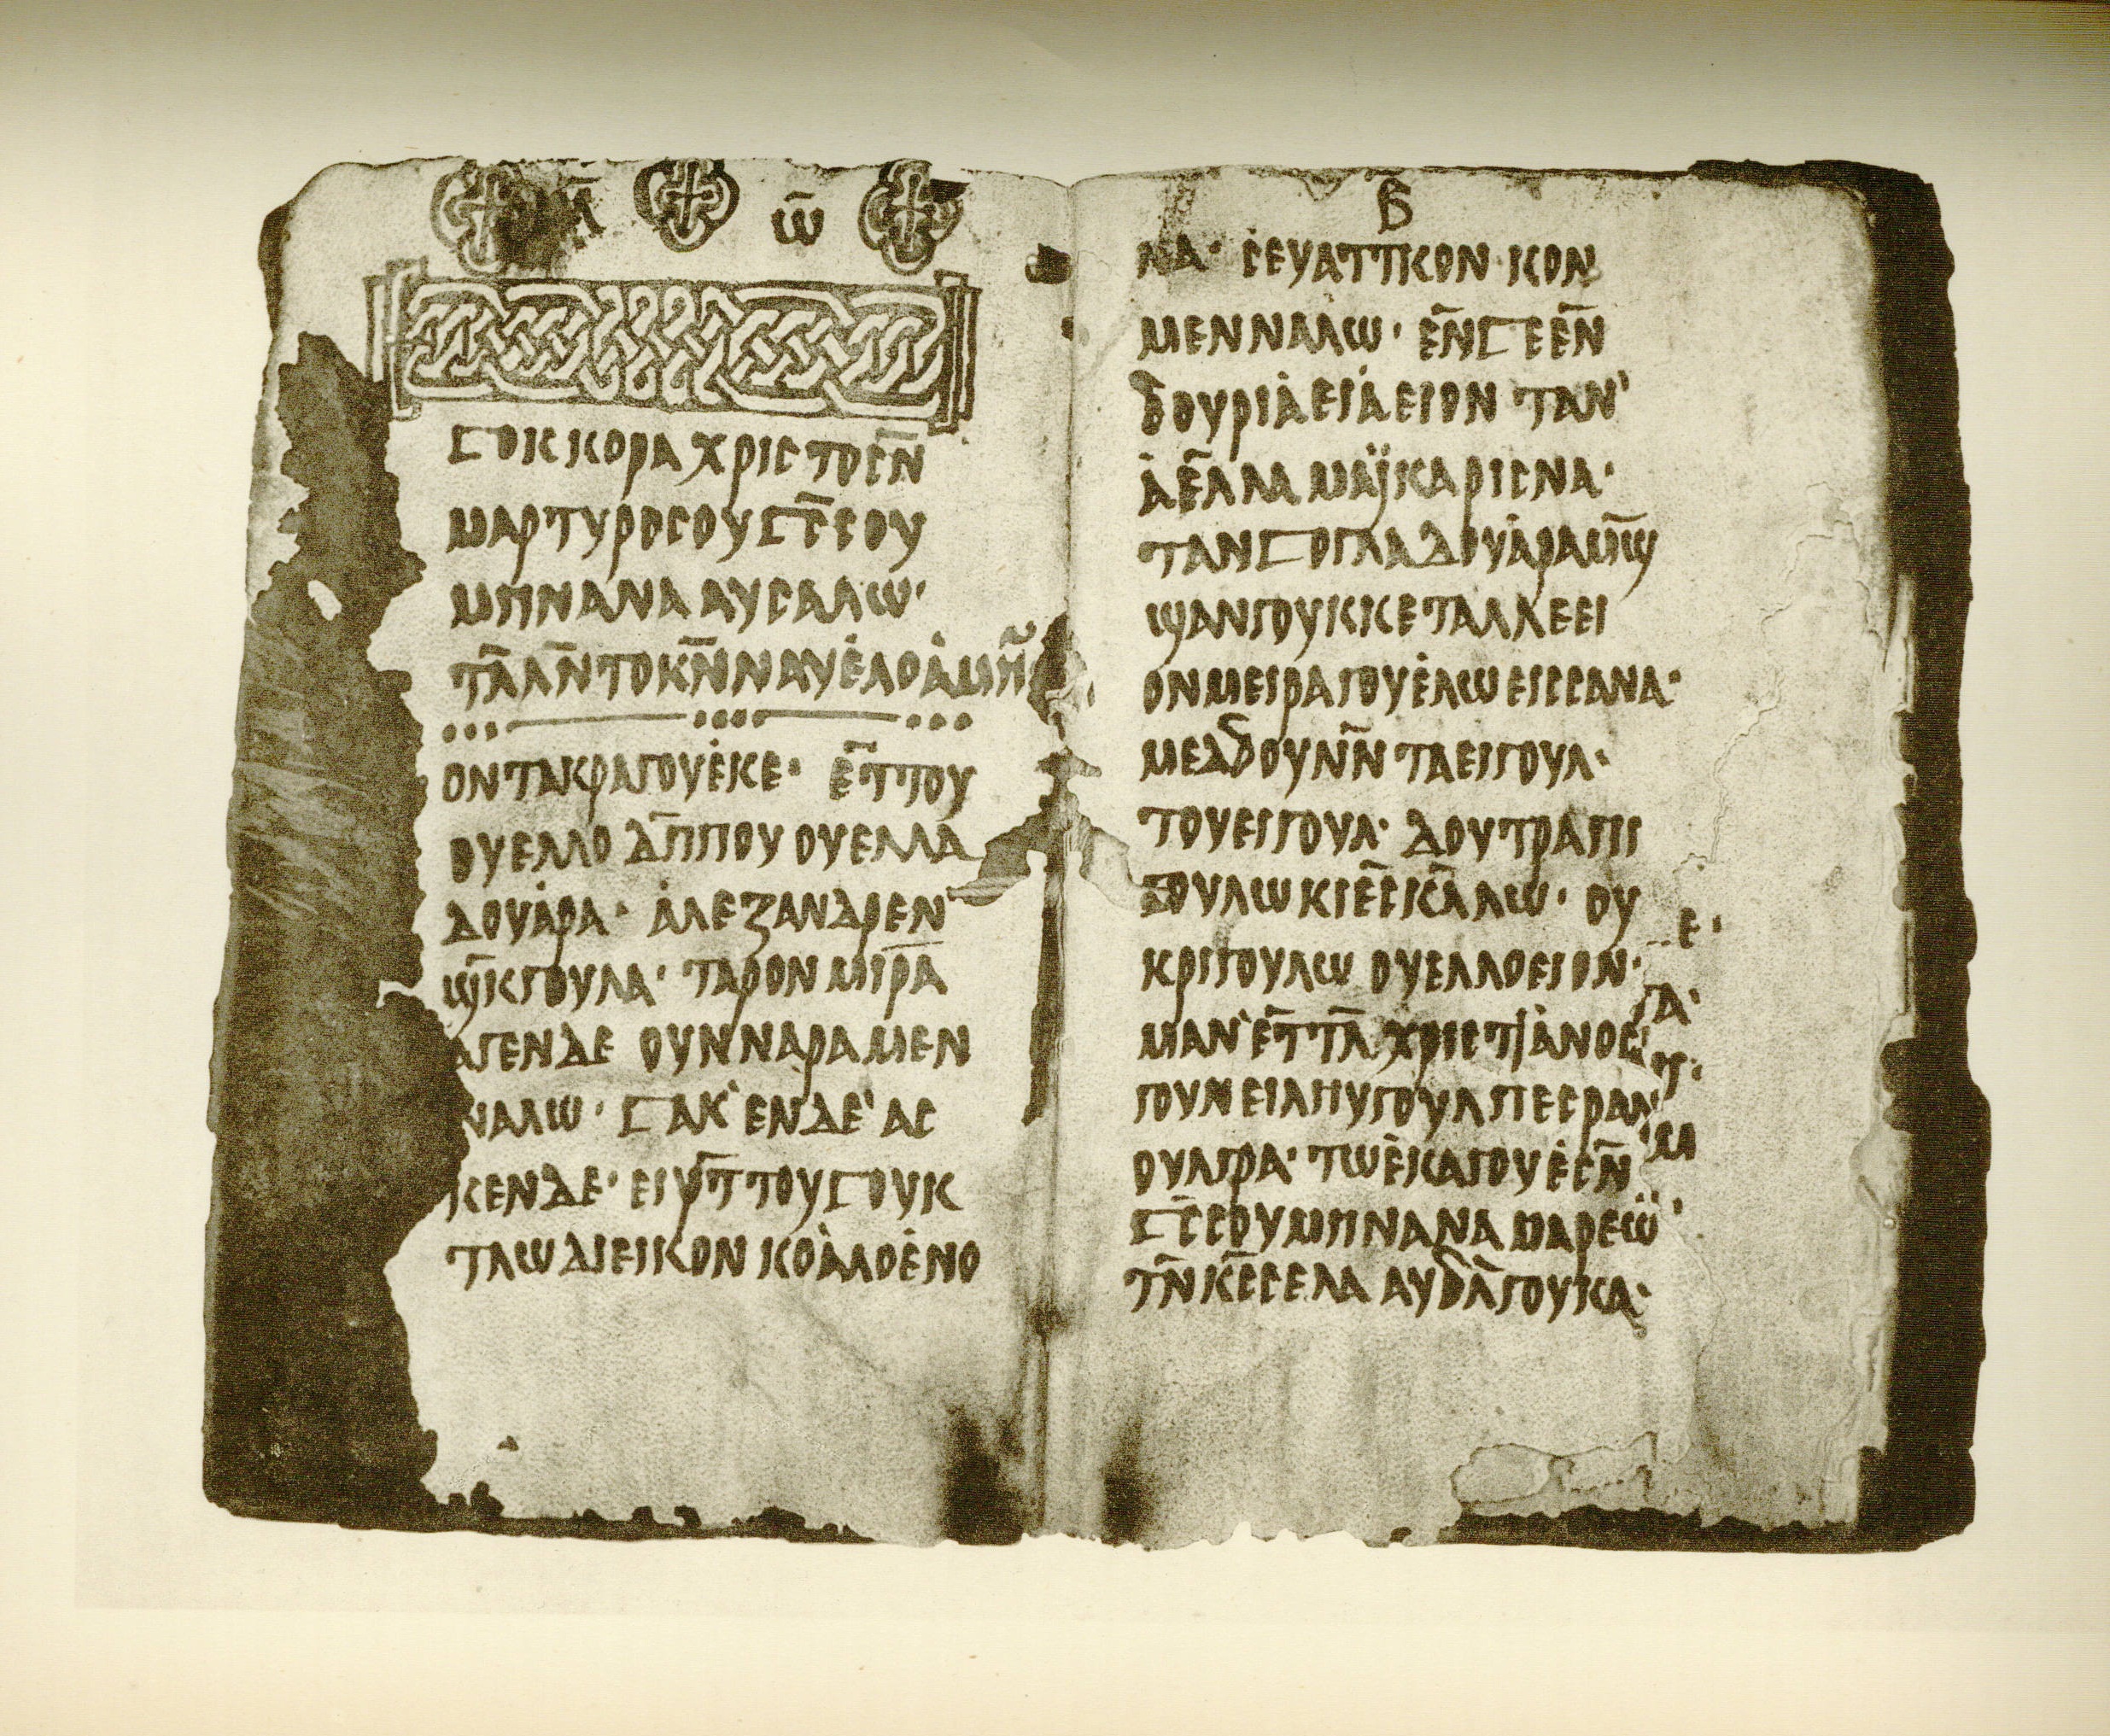 ⲁ̄ ⲱ̄
ⳟⲟⲕⲕⲟⲣⲁ ⲭⲣⲓⲥⲧⲟⲥⲛ̄
ⲙⲁⲣⲧⲩⲣⲟⲥⲟⲩ ⳟⲥ̄ⲥⲟⲩ
ⲙⲏⲛⲁⲛⲁ ⲁⲩⲥⲁⲗⲱ·
ⲧⲗ̄ⲗⲛ̄ ⲧⲟⲕⲛ̄ⲛⲁⲩⲉ̇ⲗⲟ ⲁ̇ⲙⲏⲛ̄
ⲟⲛ ⲧⲁⲕⲣⲁⲅⲟⲩⲉ̇ⲕⲉ· ⲉⲧ̄ⲧⲟⲩ
ⲟⲩⲉⲗⲗⲟ ⲇⲡ̄ⲡⲟⲩ ⲟⲩⲉⲗⲗⲁ
ⲇⲟⲩⲁ̇ⲣⲁ· ⲁ̇ⲗⲉⲝⲁⲛⲇⲣⲉⲛ
ϣⲕ̄ⲅⲟⲩⲗⲁ· ⲧⲁⲣⲟⲛ ⲙⲓⲣ̄ⲁ
ⲁⲅⲉⲛⲇⲉ ⲟⲩⲛⲛⲁⲣⲁ ⲙⲉⲛ
ⲛⲁⲗⲱ· ⳟⲁⲕ̀ⲉⲛⲇⲉ̀ ⲁⲥ
ⲕⲉⲛⲇⲉ· ⲉⲓⲩⲧ̄ⲧⲟⲩⳟⲟⲩⲕ
ⲧⲗⲱ ⲇⲓⲉⲓⲕⲟⲛ ⲕⲟⲁ̇ⲗⲟ ⲉ̇ⲛⲟ
ⲃ̄
ⲛⲁ· ⲥⲉⲩⲁⲧⲧⲕⲟⲛ ⲕⲟⲛ
ⲙⲉⲛⲛⲁⲗⲱ· ⲉⲛ̄ⳟⲉⲉⲛ̄
ϭⲟⲩⲣⲓⲁ̇ ⲉⲓⲁ̇ⲉⲓⲟⲛ ⲧⲁⲛ̀
ⲁ̇ⲉⲗ̄ⲗⲁ ⲙⲁⳣ̈ⲕⲁⲣⲓⲥⲛⲁ·
ⲧⲁⲛ ⳟⲟⲅⲗⲁ ⲇⲟⲩⲁ̇ⲣⲁⲙⲙ̄ϣ
ϣⲁⲛⲅⲟⲩⲕⲕⲉ ⲧⲁⲗⲗⲉⲉⲓ
ⲟⲛ ⲙⲉⲓⲣⲁⲅⲟⲩⲉ̇ⲗⲱ ⲉⲓⲥⲥⲁⲛⲁ·
ⲙⲉⲇϭⲟⲩⲛⲛ̄ ⲧⲁⲉⲓⲅⲟⲩⲗ·
ⲧⲟⲩⲉⲓⲅⲟⲩⲗ· ⲇⲟⲩⲧⲣⲁⲡⲓ
ⲅⲟⲩⲗⲱ ⲕⲓⲉⲥ̄ⲕⲗ̄ⲗⲱ· ⲟⲩ
ⲕⲣⲓⲅⲟⲩⲗⲱ ⲟⲩⲉⲗⲗⲟⲉⲓⲟⲛ·
ⲙⲁⲛ̀ ⲉⲧ̄ⲧⲗ̄ ⲭⲣⲓⲥⲧⲓⲁ̇ⲛⲟⲥ
ⲅⲟⲩⲛ ⲉⲓⲗⲏⲩⲅⲟⲩⲗ ⲡⲉⲥⲣⲁⲛ
ⲟⲩⲗⲅⲣⲁ· ⲧⲱⲉ̇ⲕⲁⲅⲟⲩⲉ̇ⲥⲛ̄
ⳟⲥ̄ⲥⲟⲩ ⲙⲏⲛⲁⲛⲁ ⲙⲁⲣⲉⲱ̈
ⲧⲛ̄ ⲕⲥ̄ⲥⲉⲗⲁ ⲁⲩϭⲗ̄ⲅⲟⲩⲕⲁ·